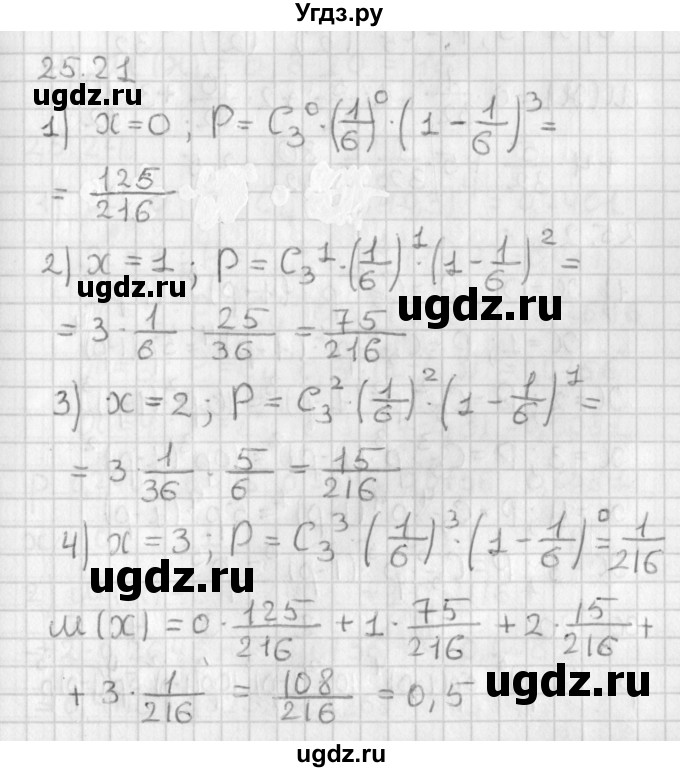 Угдз.ру
25.21
ugdz.ru
1) x = 0 ; P = C₃⁰ · (1/6)⁰ · (1 - 1/6)³ =
= 125/216
2) x = 1 ; P = C₃¹ · (1/6)¹ · (1 - 1/6)² =
ugdz.ru
ugdz.ru
= 3 · 1/6 · 25/36 = 75/216
3) x = 2 ; P = C₃² · (1/6)² · (1 - 1/6)¹ =
= 3 · 1/36 · 5/6 = 15/216
4) x = 3 ; P = C₃³ · (1/6)³ · (1 - 1/6)⁰ = 1/216
ugdz.ru
M (x) = 0 · 125/216 + 1 · 75/216 + 2 · 15/216 +
+ 3 · 1/216 = 108/216 = 0,5
ugdz.ru
ugdz.ru